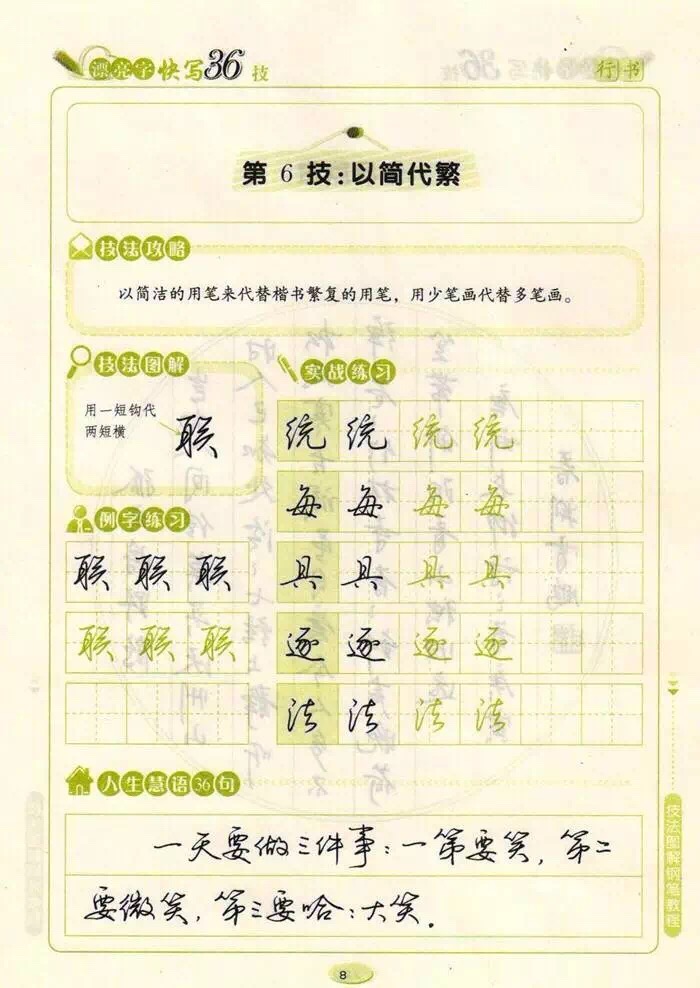 漂亮字快写36技
行书
第6技:以简代繁
技法攻略
以简洁的用笔来代替楷书繁复的用笔，用少笔画代替多笔画。
技法图解
用一短钩代
两短横
联
实战练习
统 统 统 统
每 每 每 每
具 具 具 具
逐 逐 逐 逐
法 法 法 法
例字练习
联 联 联
联 联 联
人生慧语36句
一天要做三件事：一第要笑，第二
要微笑，第三要哈：大笑.
技法图解钢笔教程
8